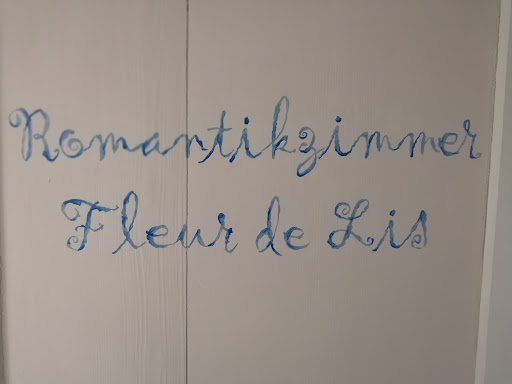 Romantikzimmer
Fleur de Lis